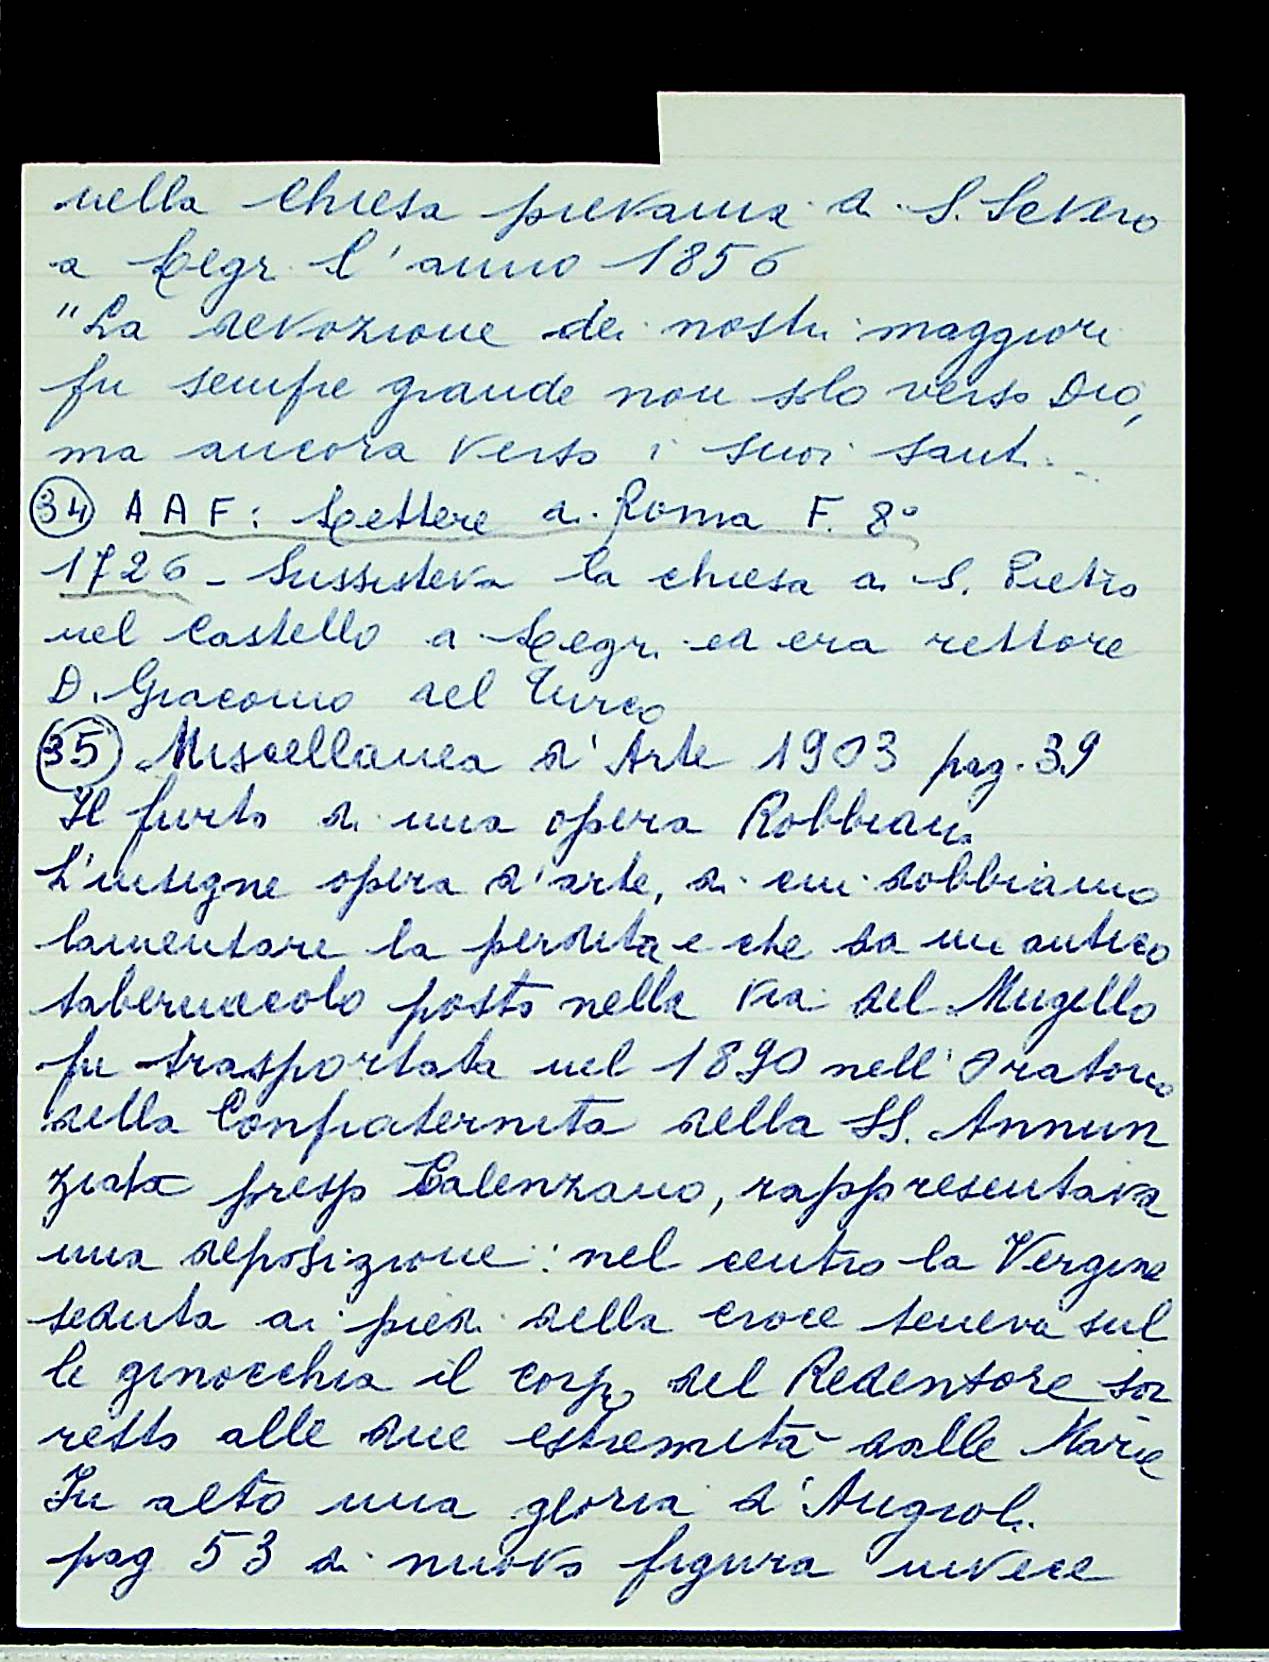 nella chiesa pievania di S. Severo
a Legri l'anno 1856
"La devozione dei nostri maggiori
fu sempre grande non solo verso Dio,
ma ancora verso i suoi santi...
(34) AAF: Lettere di Roma F. 8°
1726 - Sussisteva la chiesa di S. Pietro
nel Castello a Legri ed era rettore
D. Giacomo del Turco
(35) Miscellanea d'Arte 1903 pag. 39
Il furto di una opera Robbiana
L'insigne opera d'arte, di cui dobbiamo
lamentare la perdita e che da un antico
tabernacolo posto nella via del Mugello
fu trasportata nel 1890 nell'Oratorio
della Confraternita della SS. Annun
ziata presso Calenzano, rappresentava
una deposizione: nel centro la Vergine
seduta ai piedi della croce teneva sul
le ginocchia il corpo del Redentore sor
retto alle due estremità dalle Marie
In alto una gloria d'Angioli.
pag 53 di nuovo figura invece